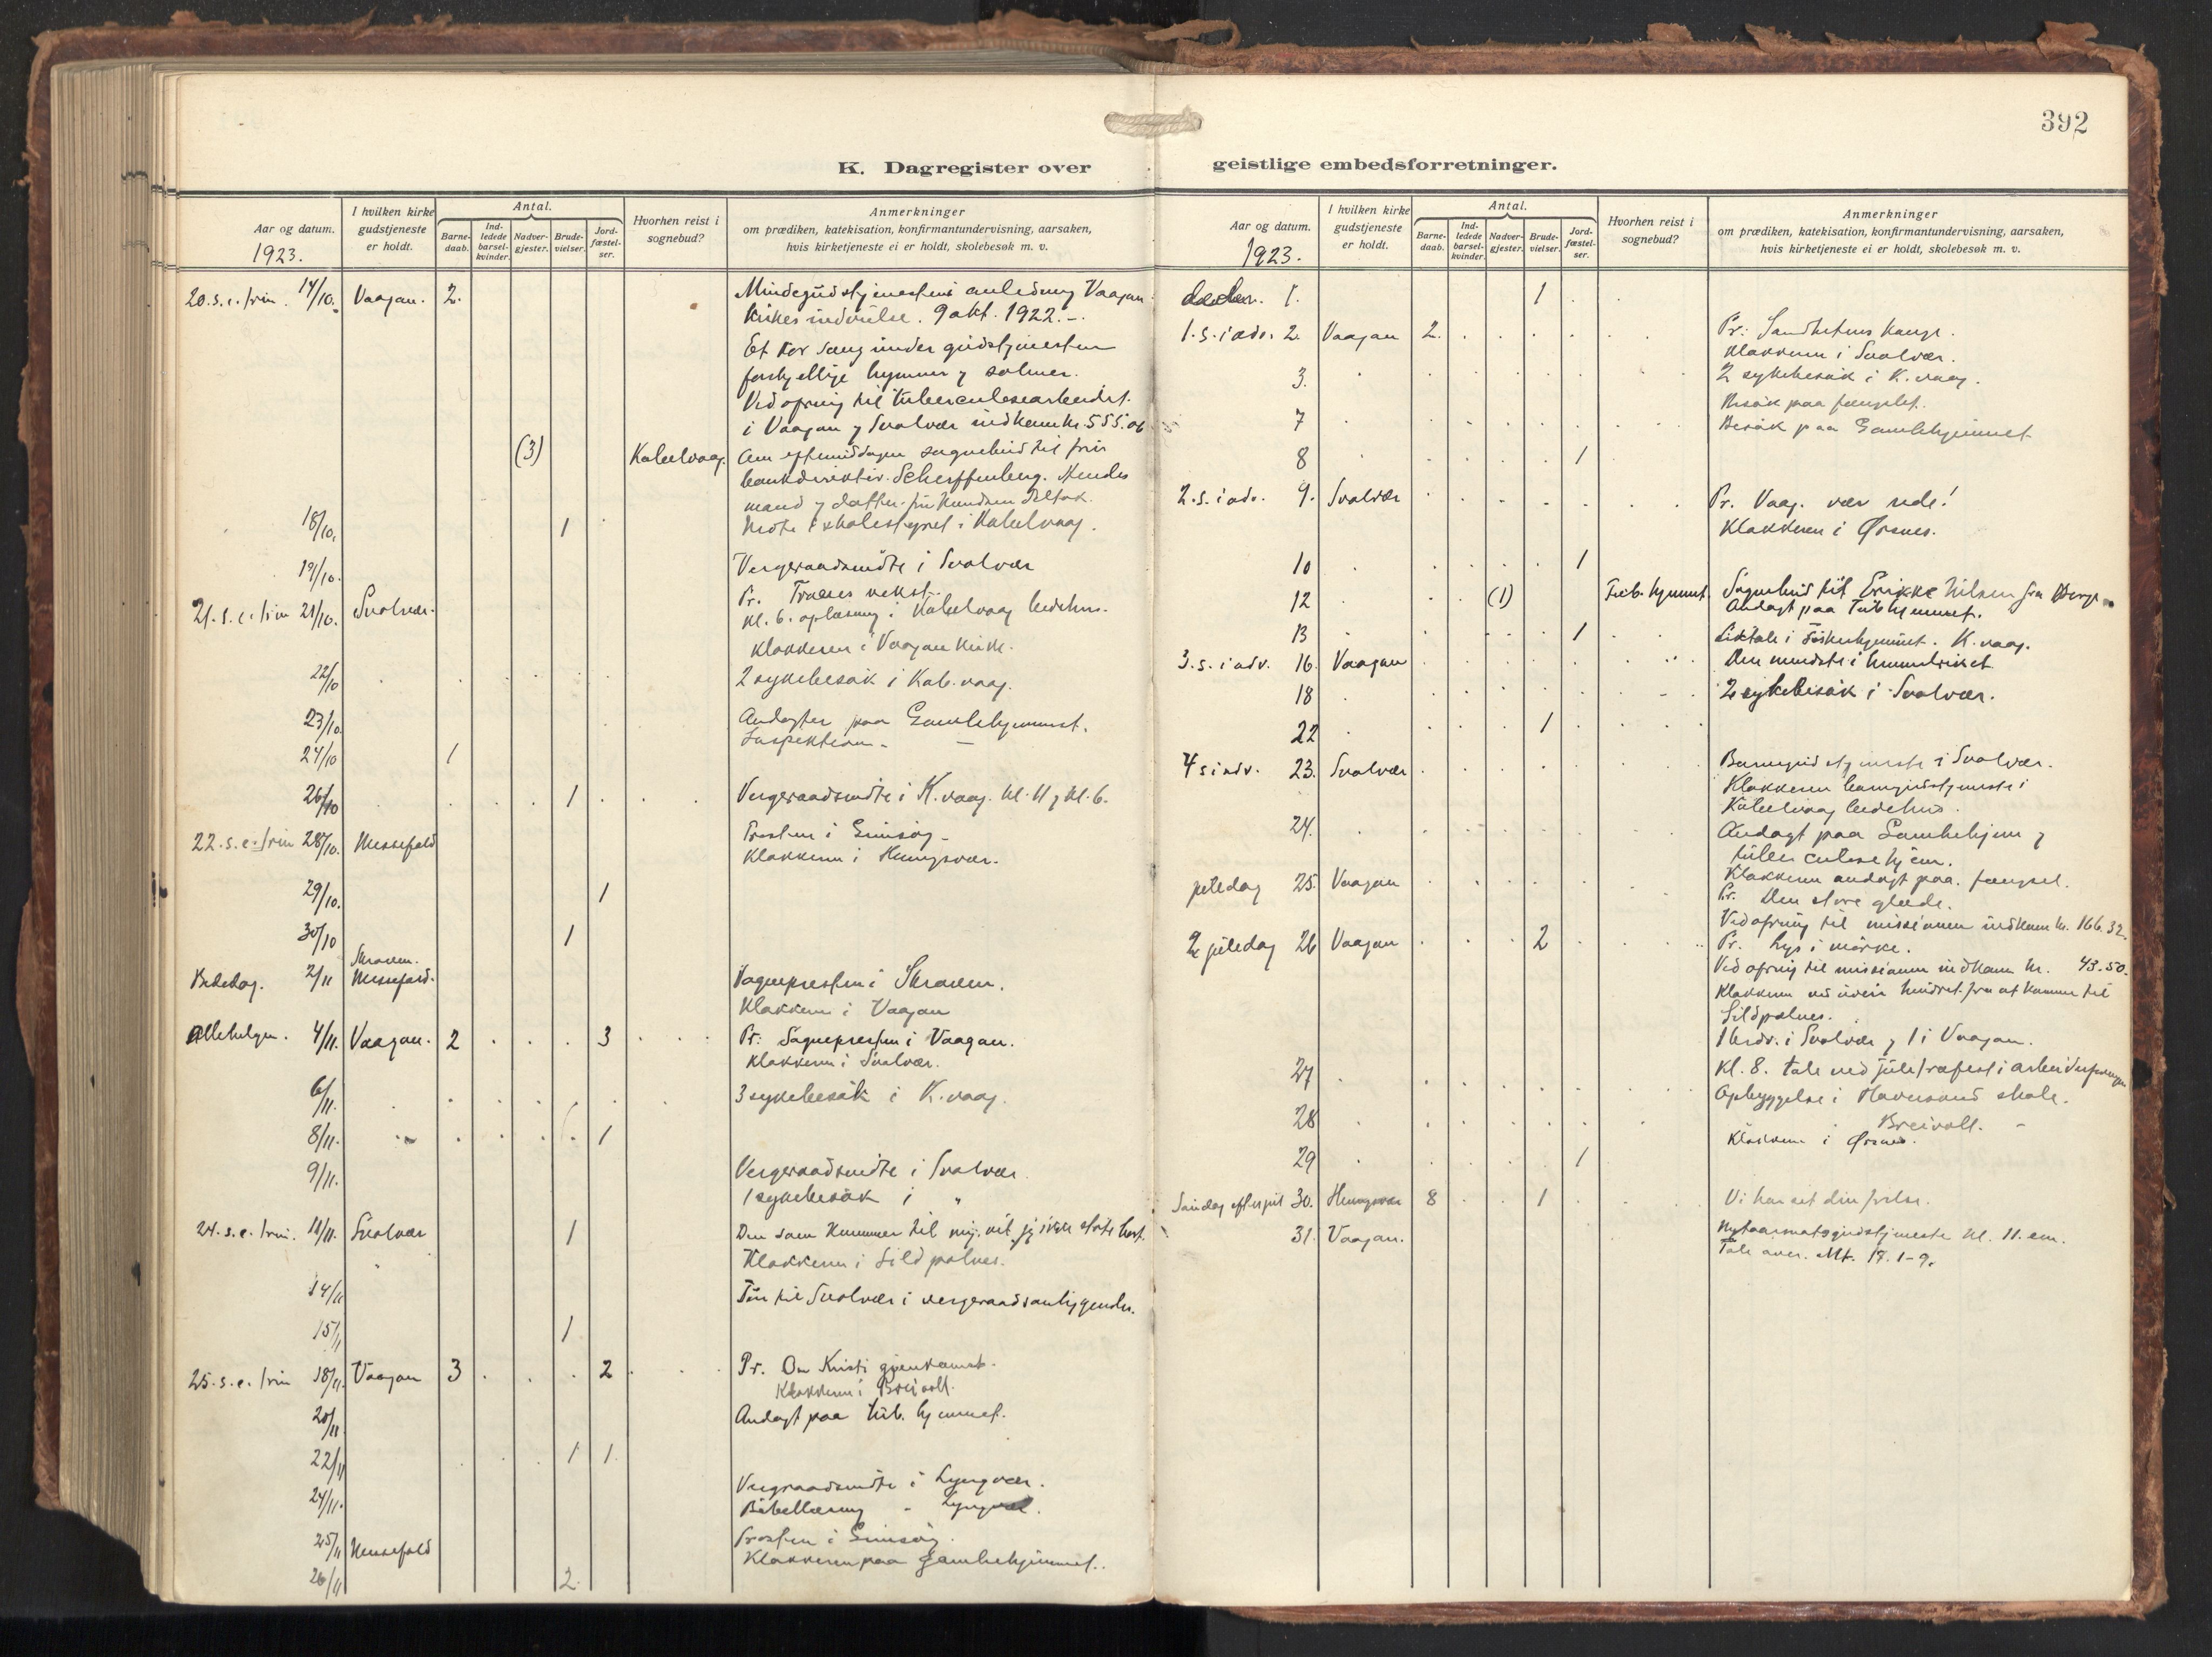 392
K. Dagregister over
Aar og datum.
1923.
I hvilken kirke gudstjeneste er holdt.
Antal.
Barne-daab.
Ind-ledede barsel-kvinder.
Nadver-gjester.
Brude-vielser.
Jord-fæstel-ser.
Hvorhen reist i sognebud?
Anmerkninger
om prædiken, katekisation, konfirmantundervisning, aarsaken,
hvis kirketjeneste ei er holdt, skolebesøk m. v.
20. s. e. trin. 14/10. Vaagan. 2. Mindegudstjeneste i anledning Vaagan
kirkes indvielse. 9 okt. 1922.
Et kor sang under gudstjenesten
forskjellige hymner og salmer.
Ved ofring til tuberculosearbeidet
i Vaagan og Svolvær indkom kr. 555.06
(3) Kabelvaag. Om eftermiddagen sognebud til fru
bankdirektør Scherffenberg. Hendes
mand og datter fru Knudsen deltok.
18/10. 1 Møte i skolestyret i Kabelvaag.
19/10. Vergeraadsmöte i Svolvær
21. s. e. trin 21/10. Svolvær. Pr. Troens vekst.
Kl. 6. oplæsning i Kabelvaag bedehus.
Klokkeren i Vaagan kirke.
22/10 2 sykebesök i Kab.vaag.
23/10 Andagter paa Gamlehjemmet.
24/10 1 Inspektion
26/10 1 Vergeraadsmöte i K.vaag. kl. 11 og kl. 6.
22. s. e. trin 28/10. Messefald Presten i Gimsöy
Klokkeren i Henningsvær.
29/10. 1
30/10 1
Bededag. 2/11 Skroven. Messefald. Sogneprestен i Skroven.
Klokkeren i Vaagan
Allehelgen. 4/11. Vaagan. 2 3 Pr. Sognepresten i Vaagan.
Klokkeren i Svolvær.
6/11. 3 sykebesök i K.vaag.
8/11. 1
9/11. Vergeraadsmöte i Svolvær
1 sykebesök i "
24. s. e. trin. 11/11. Svolvær 1 Den som kommer til mig, vil jeg ikke støte bort.
Klokkeren i Sildpolnes.
14/11 Tur til Svolvær i vergeraadsanliggender.
15/11 1
25. s. e. trin 18/11. Vaagan 3 2 Pr. Om Kristi gjenkomst.
Klokkeren i Breivoll.
20/11 Andagt paa tub. hjemmet.
22/11 1 1.
24/11. Vergeraadsmöte i Lyngvær.
Bibellæsning - Lyngvær.
25/11 Messefald Presten i Gimsöy.
Klokkeren paa Gamlehjemmet.
26/11 2.
geistlige embedsforretninger.
Aar og datum.
1923.
I hvilken kirke gudstjeneste er holdt.
Antal.
Barne-daab.
Ind-ledede barsel-kvinder.
Nadver-gjester.
Brude-vielser.
Jord-fæstel-ser.
Hvorhen reist i sognebud?
Anmerkninger
om prædiken, katekisation, konfirmantundervisning, aarsaken,
hvis kirketjeneste ei er holdt, skolebesøk m. v.
decbr. 1. 1
1. s. i adv. 2. Vaagan 2. Pr: Sandhetens konge.
Klokkeren i Svolvær.
3. 2 sykebesök i K.vaag.
Besök paa fængslet.
7 Besök paa Gamlehjemmet
8 1
2. s. i adv. 9. Svolvær Pr. Vaag. vær rede!
Klokkeren i Ørsnes.
10 1
12 (1) Tub. hjemmet. Sognebud til Erikke Nilsen fra
Andagt paa Tubhjemmet.
13 1 Liktale i Fiskerhjemmet. K.vaag.
3. s. i adv. 16. Vaagan Den mindste i himmelriket
18 2 sykebesök i Svolvær.
22 1
4 s i adv. 23. Svolvær Barnegudstjeneste i Svolvær.
Klokkeren barnegudstjeneste i
Kabelvaag bedehus.
24. Andagt paa Gamlehjem og
tuberculosehjem.
Klokkeren andagt paa fængsel.
juledag 25. Vaagan Pr. Den store glæde.
Ved ofring til missionen indkom kr. 166.32.
2 juledag 26 Vaagan 2 Pr. Lys i mörke.
Ved ofring til missionen indkom kr. 43.50.
Klokkeren ved uveir hindret fra at komme til
Sildpolnes.
1 brdv. i Svolvær og 1 i Vaagan.
27 Kl. 8. tale ved juletræfest i arbeiderforeningen
Opbyggelse i Havnsund skole.
28 Breivoll. -
Klokkeren i Ørsnes.
29 1
Söndag efter jul 30. Henningsvær 8 1 Vi har set din frelse.
31. Vaagan. Nytaarsnatsgudstjeneste kl. 11. em.
Tale over. Mt. 17. 1-9.